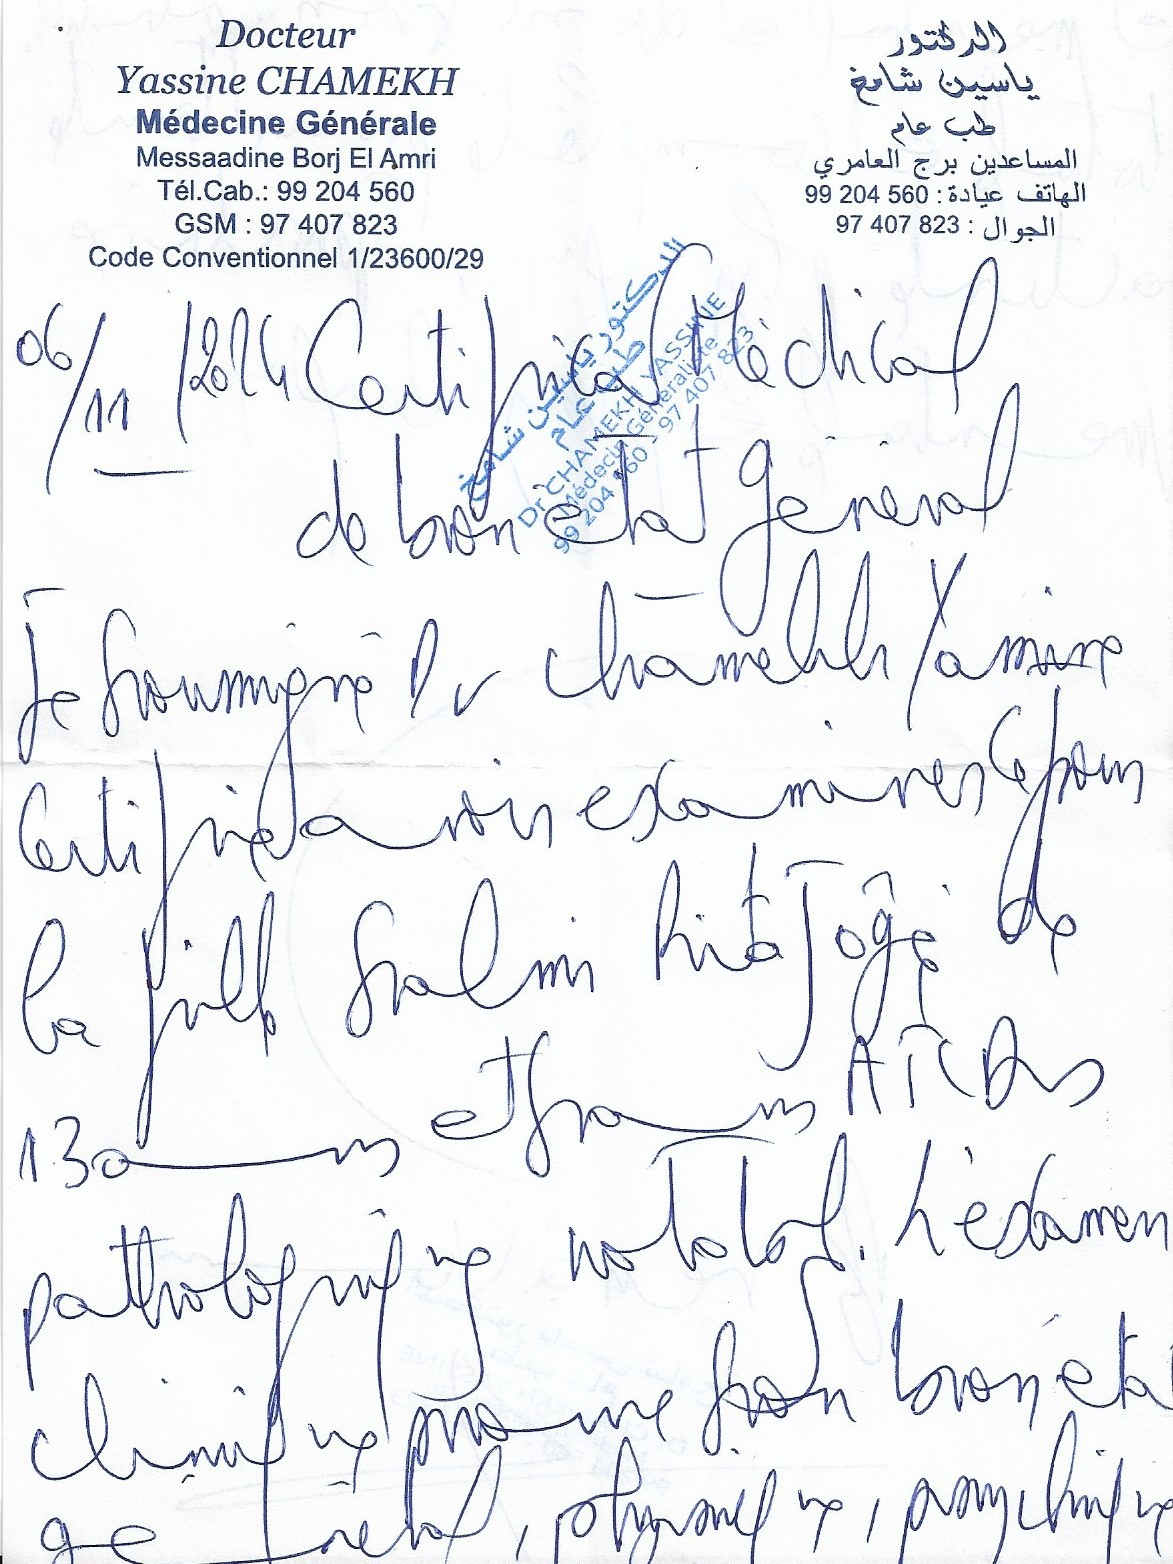 Docteur
Yassine CHAMEKH
Médecine Générale
Messaadine Borj El Amri
Tél.Cab.: 99 204 560
GSM : 97 407 823
Code Conventionnel 1/23600/29
الدكتور
ياسين شامخ
طب عام
المساعدين برج العامري
الهاتف عيادة : 560 204 99
الجوال : 823 407 97
الدكتور ياسين شامخ
طب عام
Dr CHAMEKH YASSINE
Médecin Généraliste
99 204 560 - 97 407 823
06/11/2024 Certificat Médical
de bon état général
Je soussigné Dr Chamekh Yassine
Certifie avoir examiner ce jour
la fille Salmi âgé de
13 ans et sans ATCDs
pathologique notable. L'examen
clinique prouve son bon état
général, physique, psychique